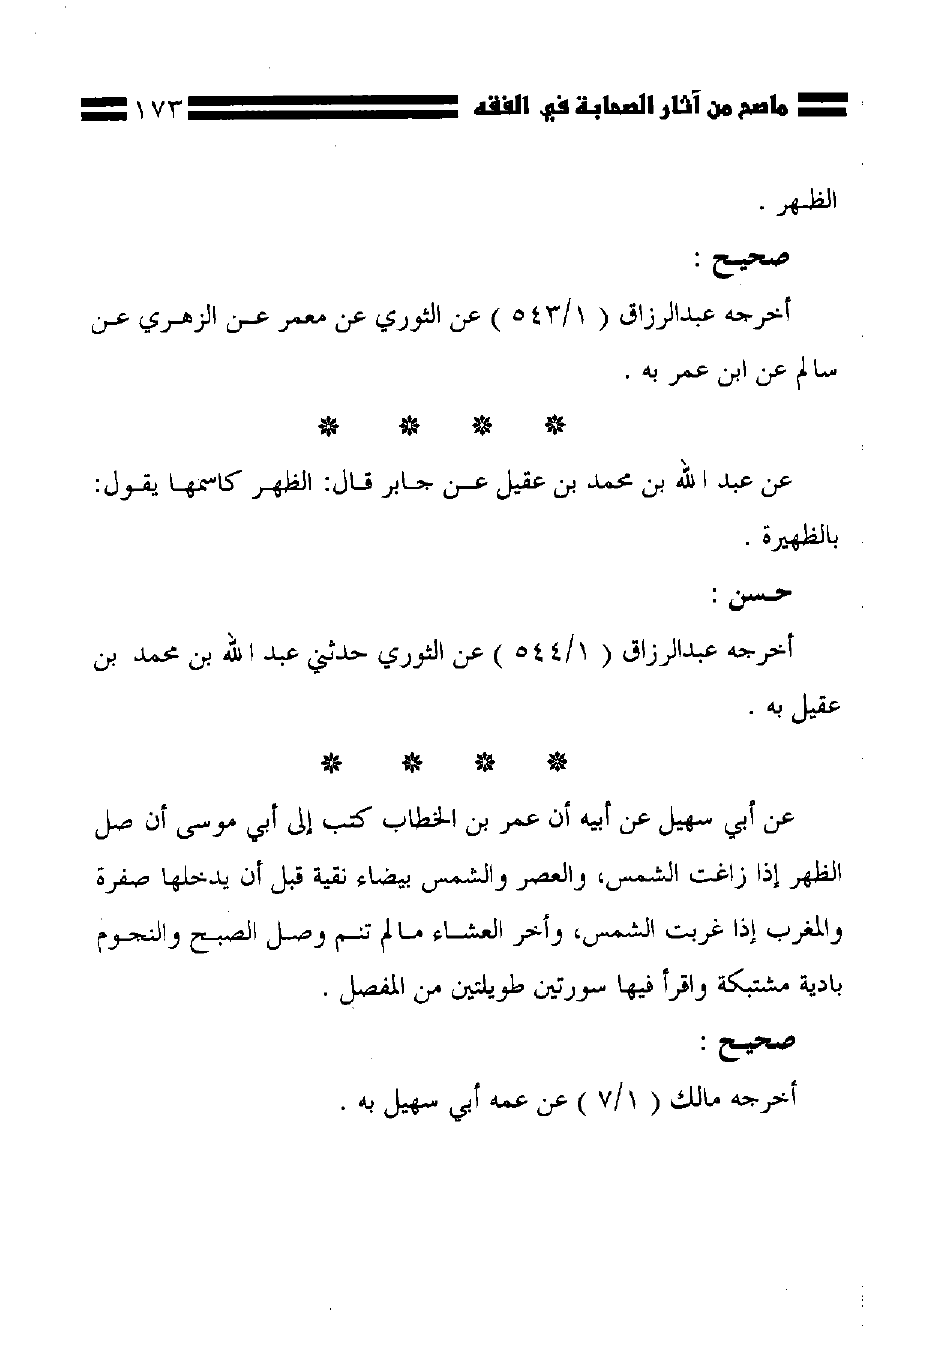 ماصح من آثار الصحابة في الفقه ١٧٣
الظهر .
صحيح :
أخرجه عبدالرزاق ( ٥٤٣/١ ) عن الثوري عن معمر عن الزهري عن
سالم عن ابن عمر به .
عن عبد الله بن محمد بن عقيل عن جابر قال: الظهر كاسمها يقول:
بالظهيرة .
حسن :
أخرجه عبدالرزاق ( ٥٤٤/١ ) عن الثوري حدثني عبد الله بن محمد بن
عقيل به .
عن أبي سهيل عن أبيه أن عمر بن الخطاب كتب إلى أبي موسى أن صل
الظهر إذا زاغت الشمس، والعصر والشمس بيضاء نقية قبل أن يدخلها صفرة
والمغرب إذا غربت الشمس، وأخر العشاء مالم تنم وصل الصبح والنجوم
بادية مشتبكة واقرأ فيها سورتين طويلتين من المفصل .
صحيح :
أخرجه مالك ( ٧/١ ) عن عمه أبي سهيل به .